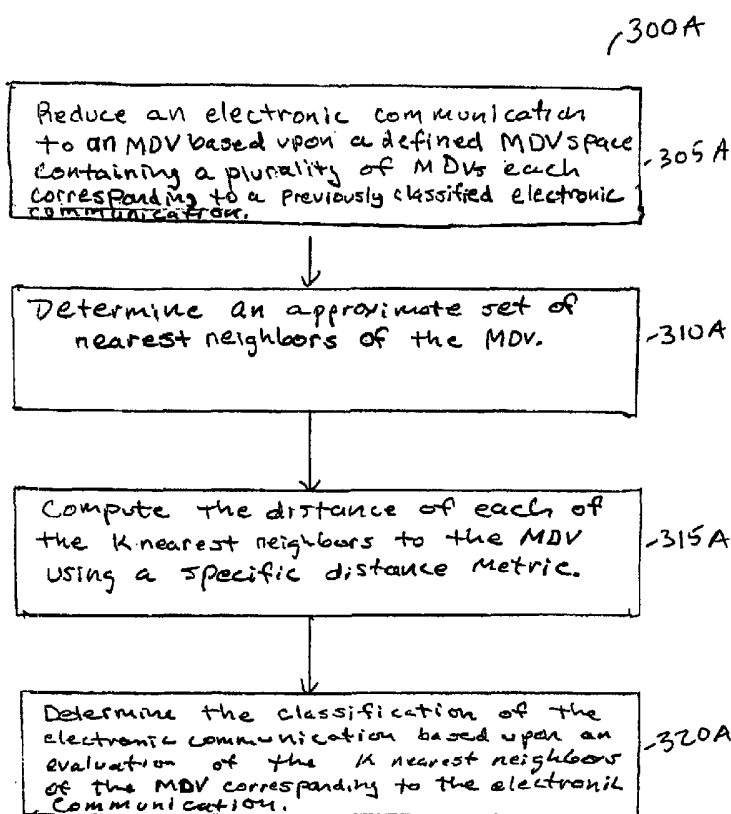 300A
Reduce an electronic communication
to an MDV based upon a defined MDV space
containing a plurality of MDVs each
corresponding to a previously classified electronic
communication.
305A
Determine an approximate set of
nearest neighbors of the MDV.
310A
Compute the distance of each of
the K nearest neighbors to the MDV
using a specific distance metric.
315A
Determine the classification of the
electronic communication based upon an
evaluation of the K nearest neighbors
of the MDV corresponding to the electronic
communication.
320A